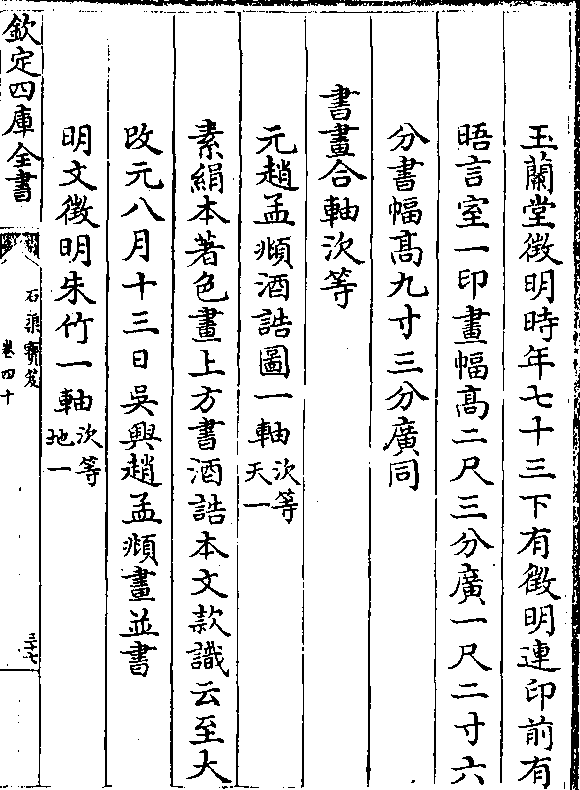 玉蘭堂徵明時年七十三下有徵明連印前有
晤言室一印畫幅髙二尺三分廣一尺二寸六
分書幅髙九寸三分廣同
書畫合軸次等
元趙孟頫酒誥圖一軸次等天一
素絹本著色畫上方書酒誥本文款識云至大
改元八月十三日吳興趙孟頫畫並書
明文徵明朱竹一軸次等地一
欽定四庫全書
石渠寳笈
卷四十
三十七